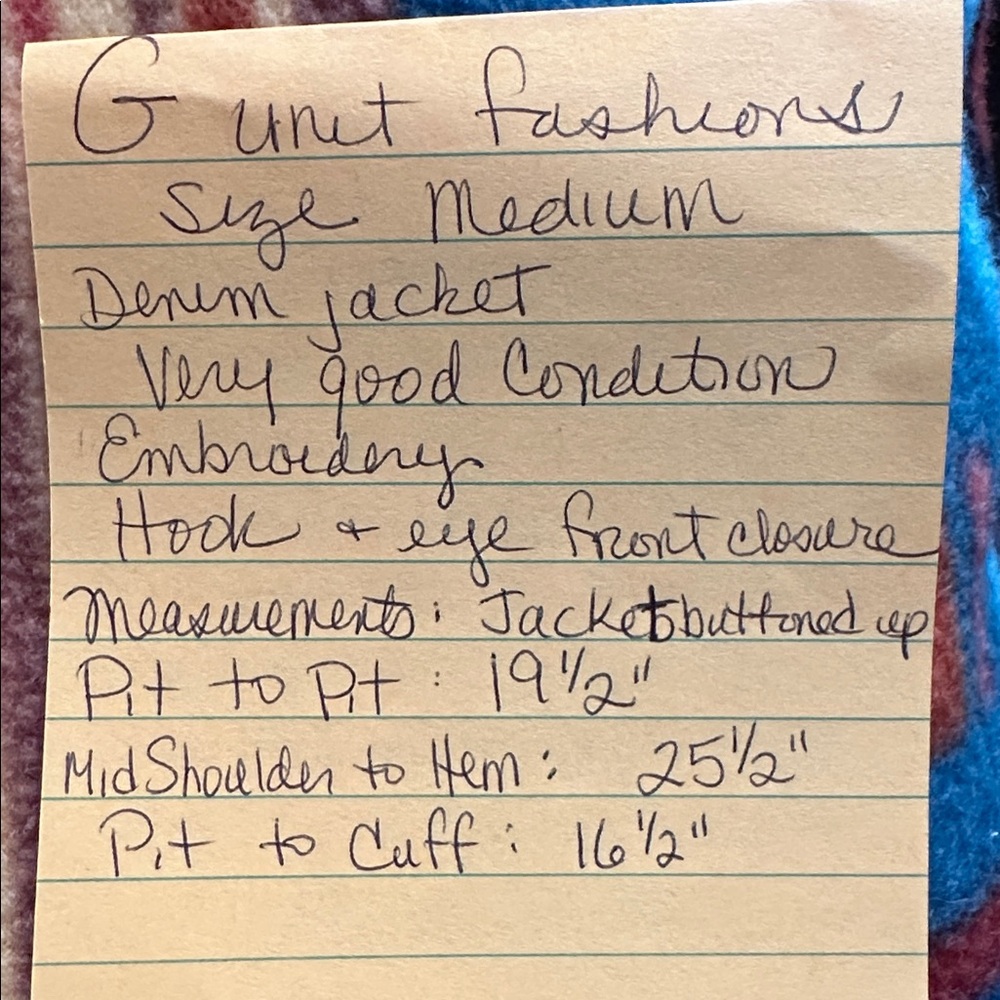 G unit fashions
Size Medium
Denim jacket
Very good Condition
Embroidery
Hook & eye front closure
Measurements: Jacket buttoned up
Pit to Pit : 19 1/2"
Mid Shoulder to Hem : 25 1/2"
Pit to Cuff : 16 1/2"